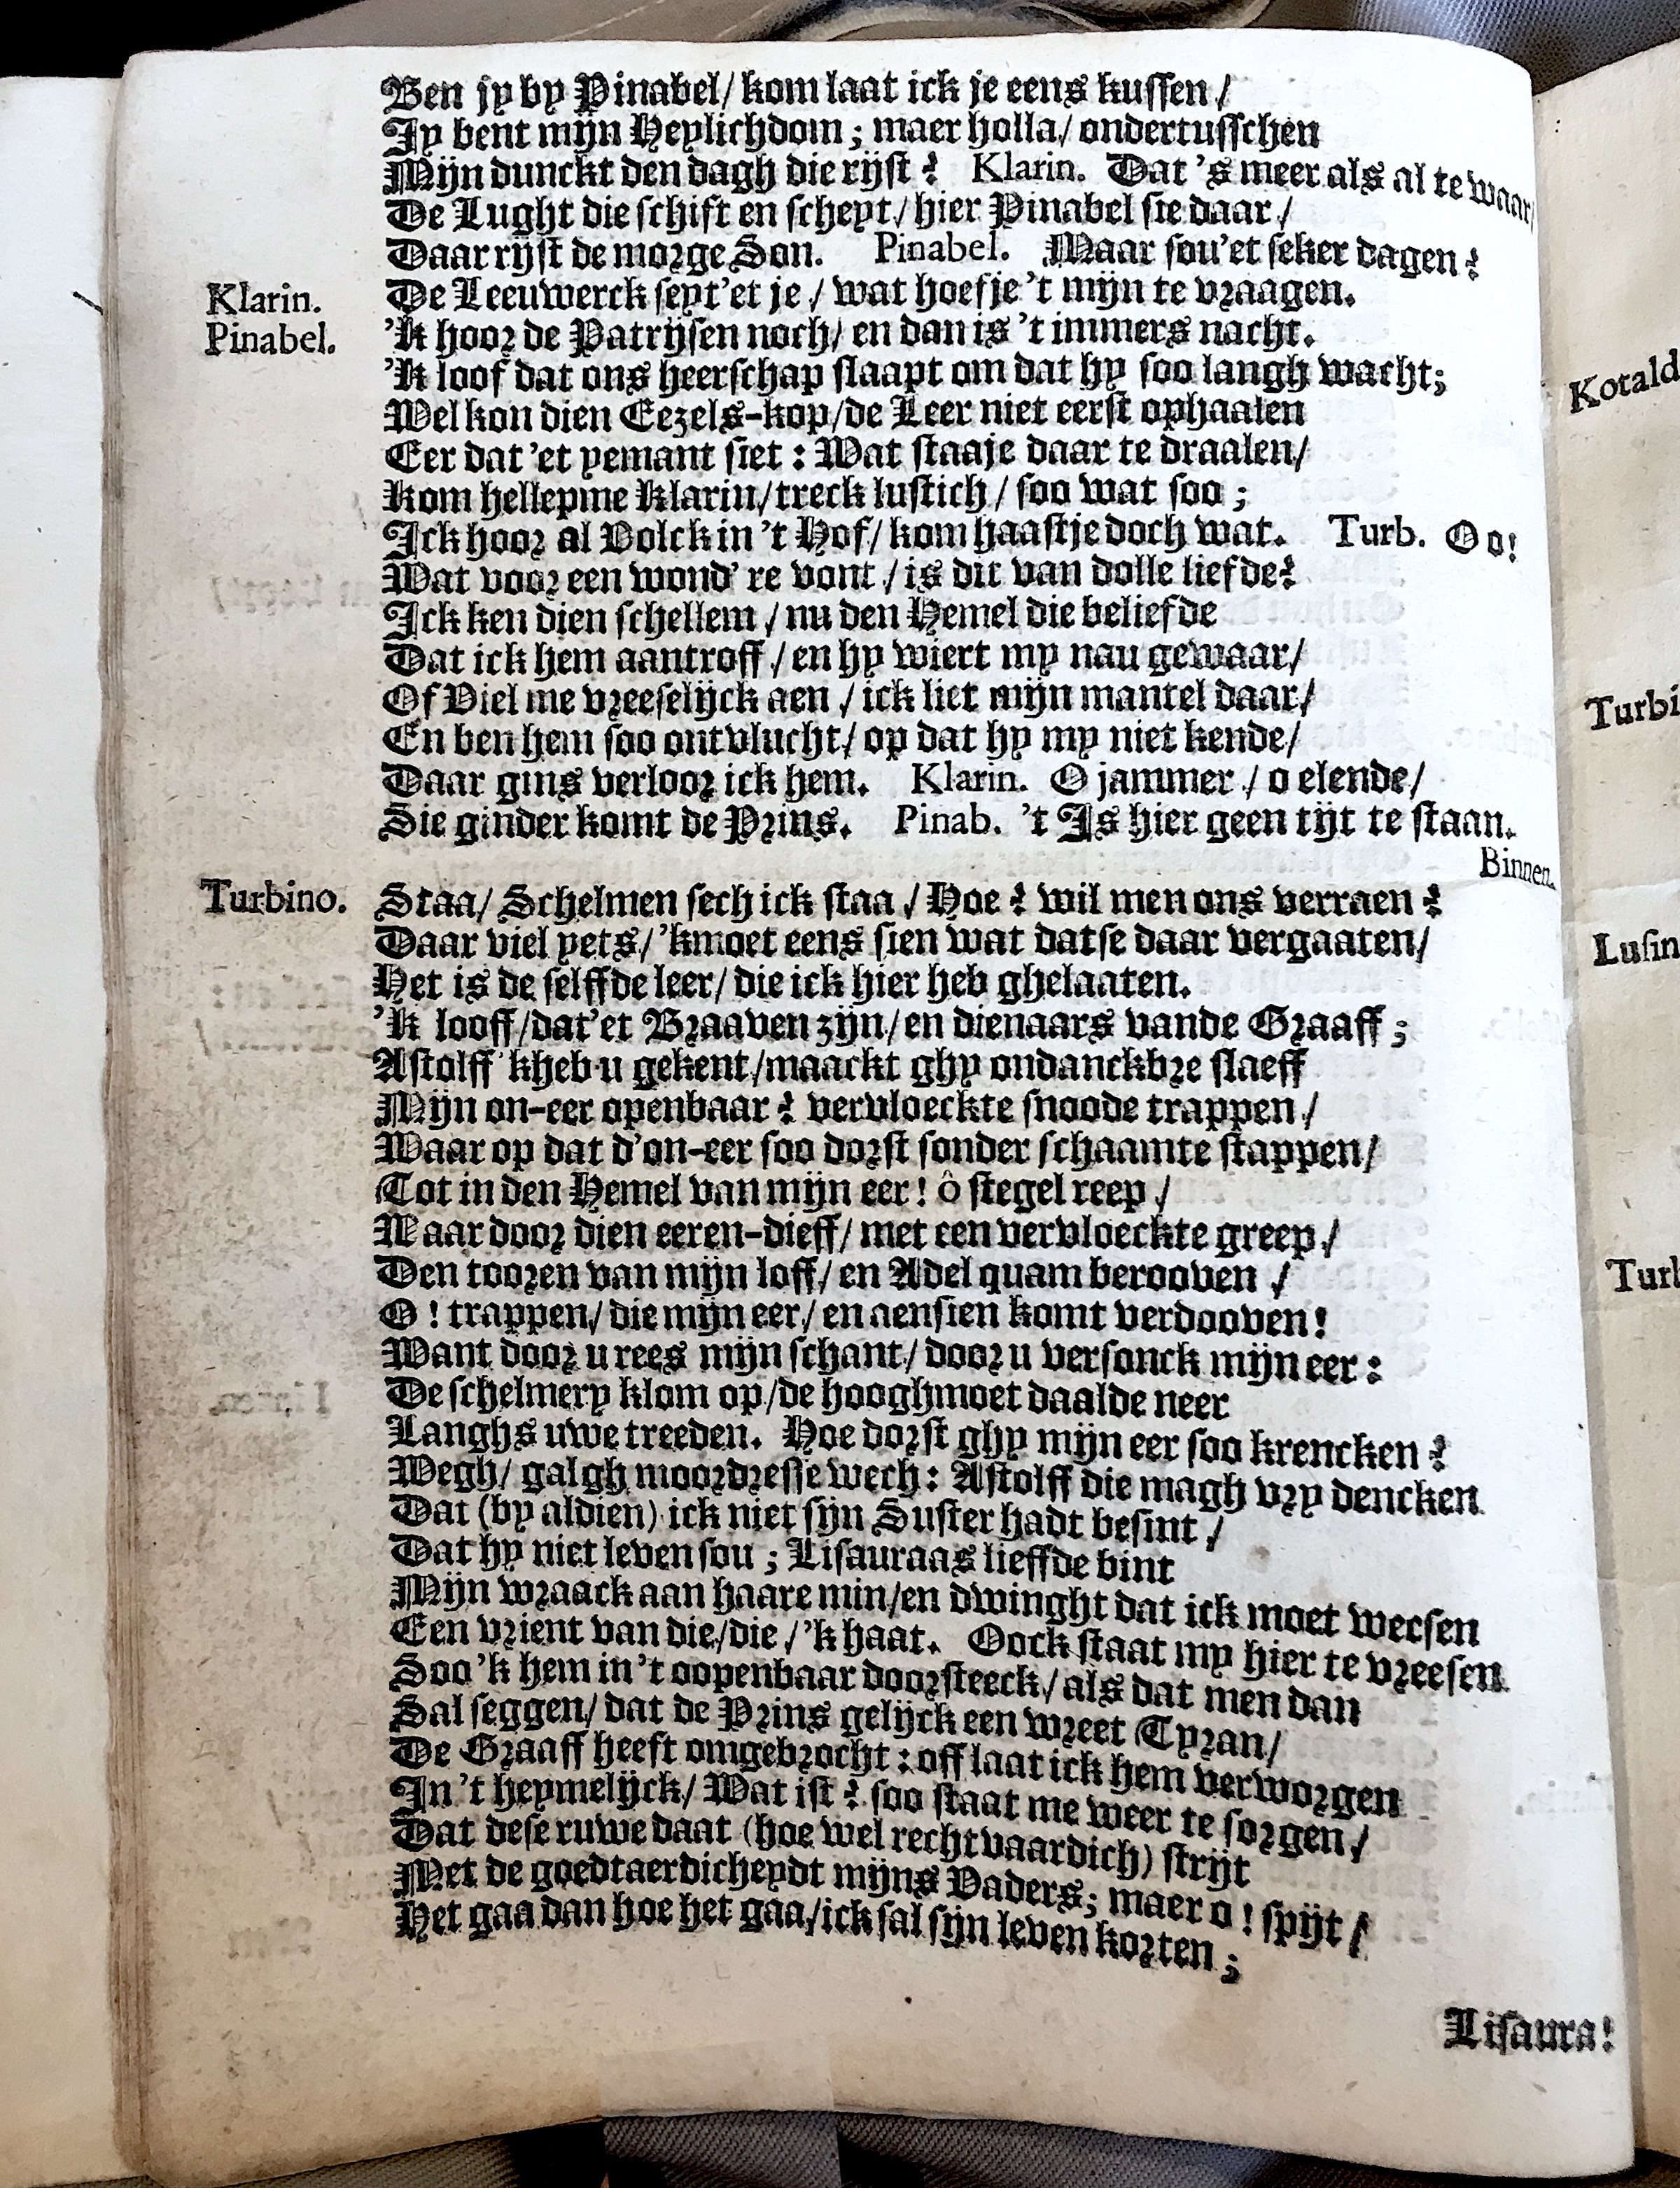 Ben jy by Pinabel/ kom laat ick je eens kussen /
Jy bent mijn Heylichdom; maer holla/ ondertusschen
Mijn dunckt den dagh die rijst? Klarin. Dat 's meer als al te waar/
De Lught die schift en scheyt/ hier Pinabel sie daar/
Daar rijst de morge Son. Pinabel. Maar sou'et seker dagen?
Klarin. De Leeuwerck seyt'et je / wat hoefje 't mijn te vraagen.
Pinabel. 'K hoor de Patrijsen noch/ en dan is 't immers nacht.
'K loof dat ons heerschap slaapt om dat hy soo langh wacht;
Wel kon dien Eezels-kop/de Leer niet eerst ophaalen
Eer dat 'et yemant siet: Wat staaje daar te draalen/
Kom hellepme Klarin/treck lustich / soo wat soo;
Ick hoor al Volck in 't Hof/ kom haastje doch wat. Turb. O o!
Wat voor een wond're vont / is dit van dolle liefde?
Ick ken dien schellem / nu den Hemel die beliefde
Dat ick hem aantroff / en hy wiert my nau gewaar/
Of Viel me vreeselijck aen / ick liet mijn mantel daar/
En ben hem soo ontvlucht/ op dat hy my niet kende/
Daar gins verloor ick hem. Klarin. O jammer / o elende/
Sie ginder komt de Prins. Pinab. 't Is hier geen tijt te staan.
Binnen.
Turbino. Staa/ Schelmen sech ick staa / Hoe? wil men ons verraen?
Daar viel yets/ 'kmoet eens sien wat datse daar vergaaten/
Het is de selffde leer/ die ick hier heb ghelaaten.
'K looff/dat'et Braaven zijn/en dienaars vande Graaff;
Astolff 'kheb u gekent/maackt ghy ondanckbre slaeff
Mijn on-eer openbaar? vervloeckte snoode trappen/
Waar op dat d'on-eer soo dorst sonder schaamte stappen/
Tot in den Hemel van mijn eer! ô stegel reep/
Waar door dien eeren-dieff/ met een vervloeckte greep/
Den tooren van mijn loff/ en Adel quam berooven /
O! trappen/ die mijn eer/ en aensien komt verdooven!
Want door u rees mijn schant/ door u versonck mijn eer:
De schelmery klom op/de hooghmoet daalde neer
Langhs uwe treeden. Hoe dorst ghy mijn eer soo krencken?
Wegh/ galgh moordresse wech: Astolff die magh vry dencken
Dat (by aldien) ick niet sijn Suster hadt besint /
Dat hy niet leven sou; Lisauraas lieffde bint
Mijn wraack aan haare min/en dwinght dat ick moet weesen
Een vrient van die/die / 'k haat. Oock staat my hier te vreesen
Soo 'k hem in't oopenbaar doorsteeck/ als dat men dan
Sal seggen/ dat de Prins gelijck een wreet Tyran/
De Graaff heeft omgebrocht: off laat ick hem verworgen
In 't heymelijck/ Wat ist? soo staat me weer te sorgen/
Dat dese ruwe daat (hoe wel rechtvaardich) strijt
Met de goedtaerdicheydt mijns Vaders; maer o! spijt /
Het gaa dan hoe het gaa/ick sal sijn leven korten;
Lisaura!
Kotald
Turbi
Lusin
Turb